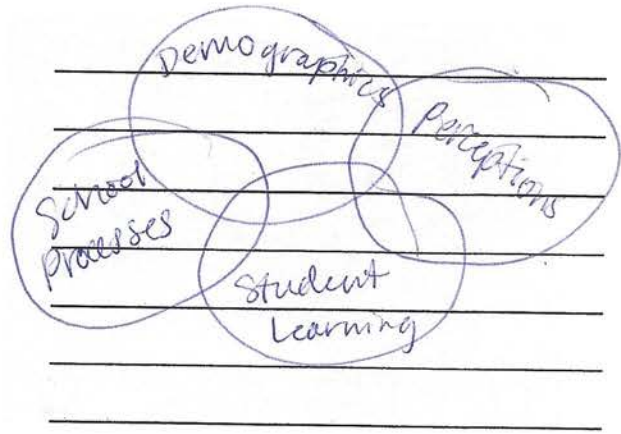 Demographics
Perceptions
School
Processes
Student
Learning